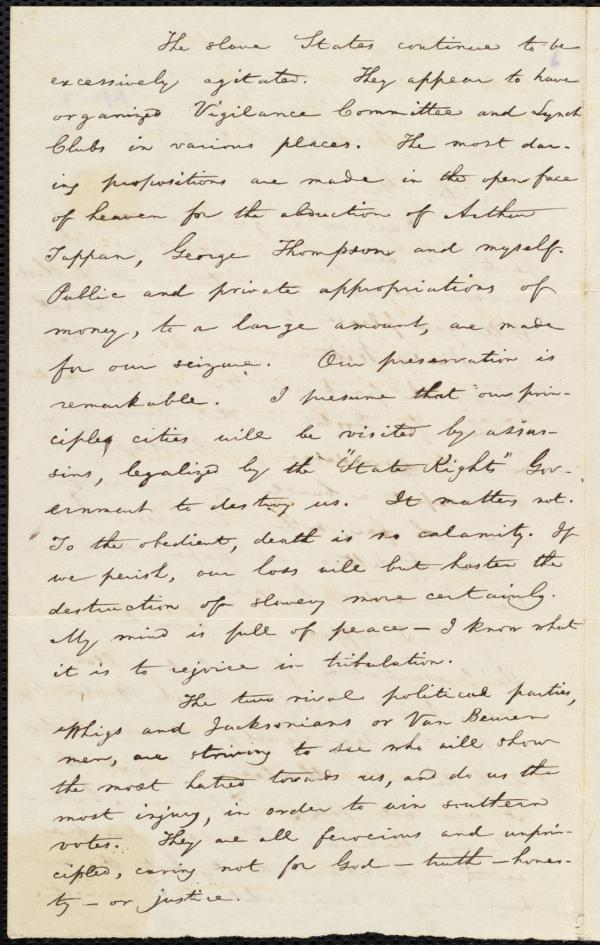 The slave States continue to be
excessively agitated. They appear to have
organized Vigilance Committees and Lynch
Clubs in various places. The most dar-
ing propositions are made in the open face
of heaven for the abduction of Arthur
Tappan, George Thompson and myself.
Public and private appropriations of
money, to a large amount, are made
for our seizure. Our preservation is
remarkable. I presume that our prin-
ciple cities will be visited by assas-
sins, legalized by the "State Right" Gov-
ernment to destroy us. It matters not.
To the obedient, death is no calamity. If
we perish, our loss will but hasten the
destruction of slavery more certainly.
My mind is full of peace — I know what
it is to rejoice in tribulation.
The two rival political parties,
Whigs and Jacksonians or Van Beuren
men, are striving to see who will show
the most hatred towards us, and do us the
most injury, in order to win southern
votes. They are all ferocious and unprin-
cipled, caring not for God — truth — hones-
ty — or justice.